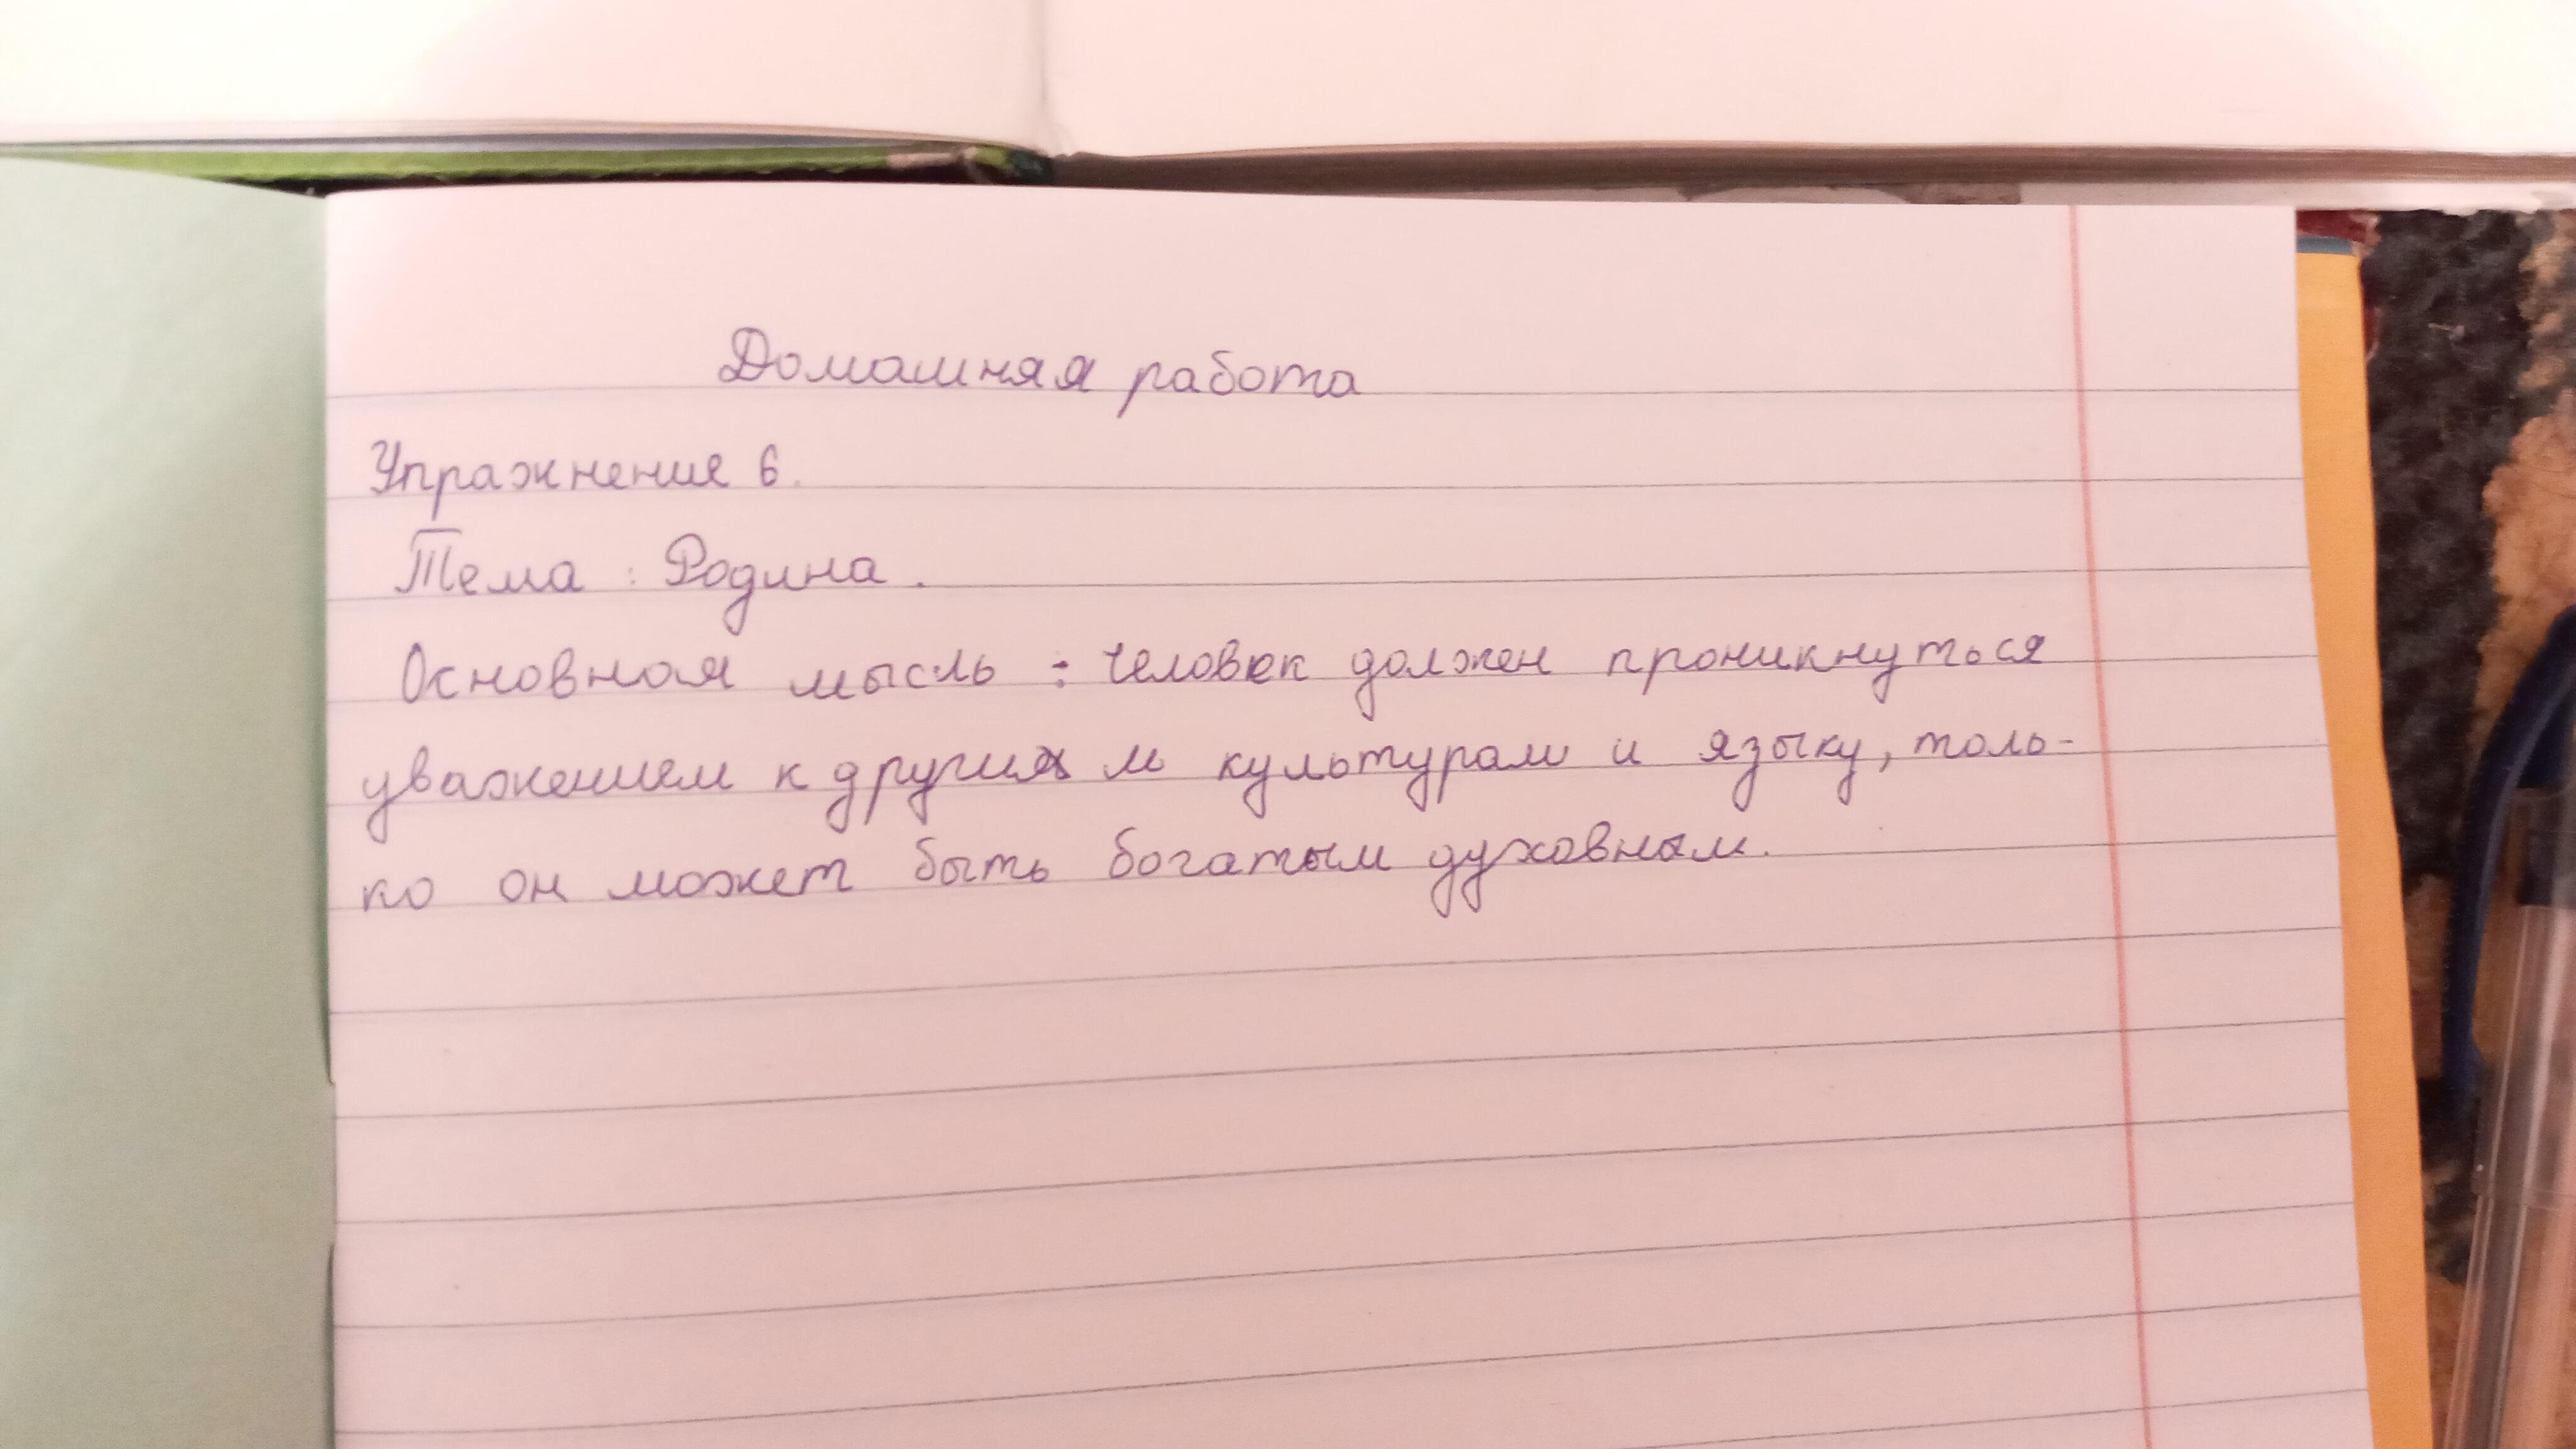 Домашняя работа
Упражнения 6.
Тема : Родина.
Основная мысль : человек должен проникнуться
уважением к другим культурам и языку, толь-
ко он может быть богатым духовным.